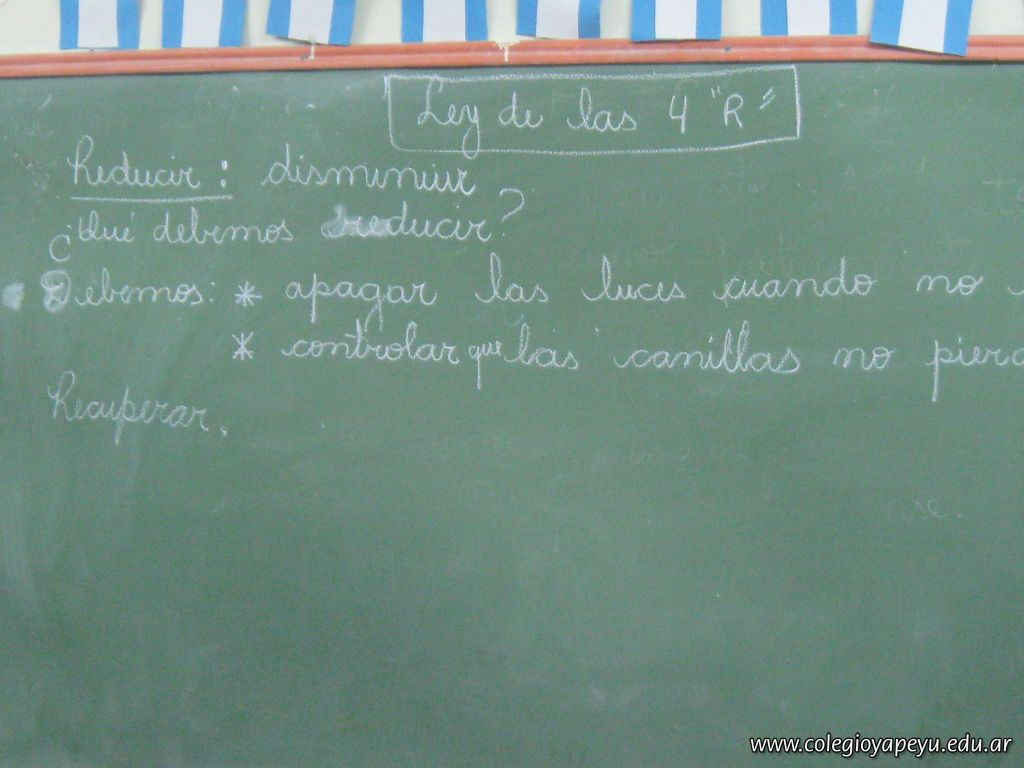 Ley de las 4 "R"
Reducir: disminuir
¿Qué debemos reducir?
Debemos: * apagar las luces cuando no
* controlar que las canillas no pierd
Recuperar.
www.colegioyapeyu.edu.ar